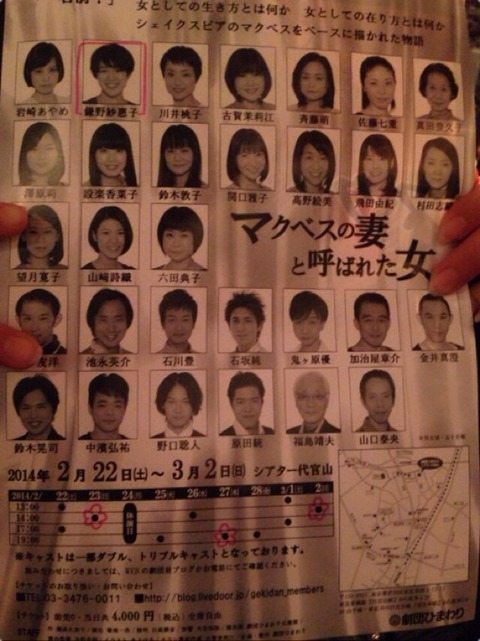 女としての生き方とは何か　女としての在り方とは何か
シェイクスピアのマクベスをベースに描かれた物語
岩崎あやめ 鎌野紗惠子 川井桃子 古賀茉莉江 斉藤萌 佐藤七重
澤原莉 設楽香菜子 鈴木敦子 関口雅子 高野絵美 飛田由紀 村田志織
マクベスの妻
と呼ばれた女
望月寛子 山﨑詩織 六田典子
友洋 池永英介 石川豊 石坂純 鬼ヶ原優 加治屋章介 金井真澄
鈴木晃司 中濱弘祐 野口聡人 原田統 福島靖夫 山口泰央
2014年 2月 22日(土)～ 3月 2日(日) シアター代官山
2014/2/ 22(土) 23(日) 24(月) 25(火) 26(水) 27(木) 28(金) 3/1(土) 2(日)
13:00
14:00
17:00
19:00
休演日
※キャストは一部ダブル、トリプルキャストとなっております。
■TEL.03-3476-0011 ■http://blog.livedoor.jp/gekidan_members
【チケット】前売り・当日共 4,000円（税込）全席自由
STAFF
劇団ひまわり